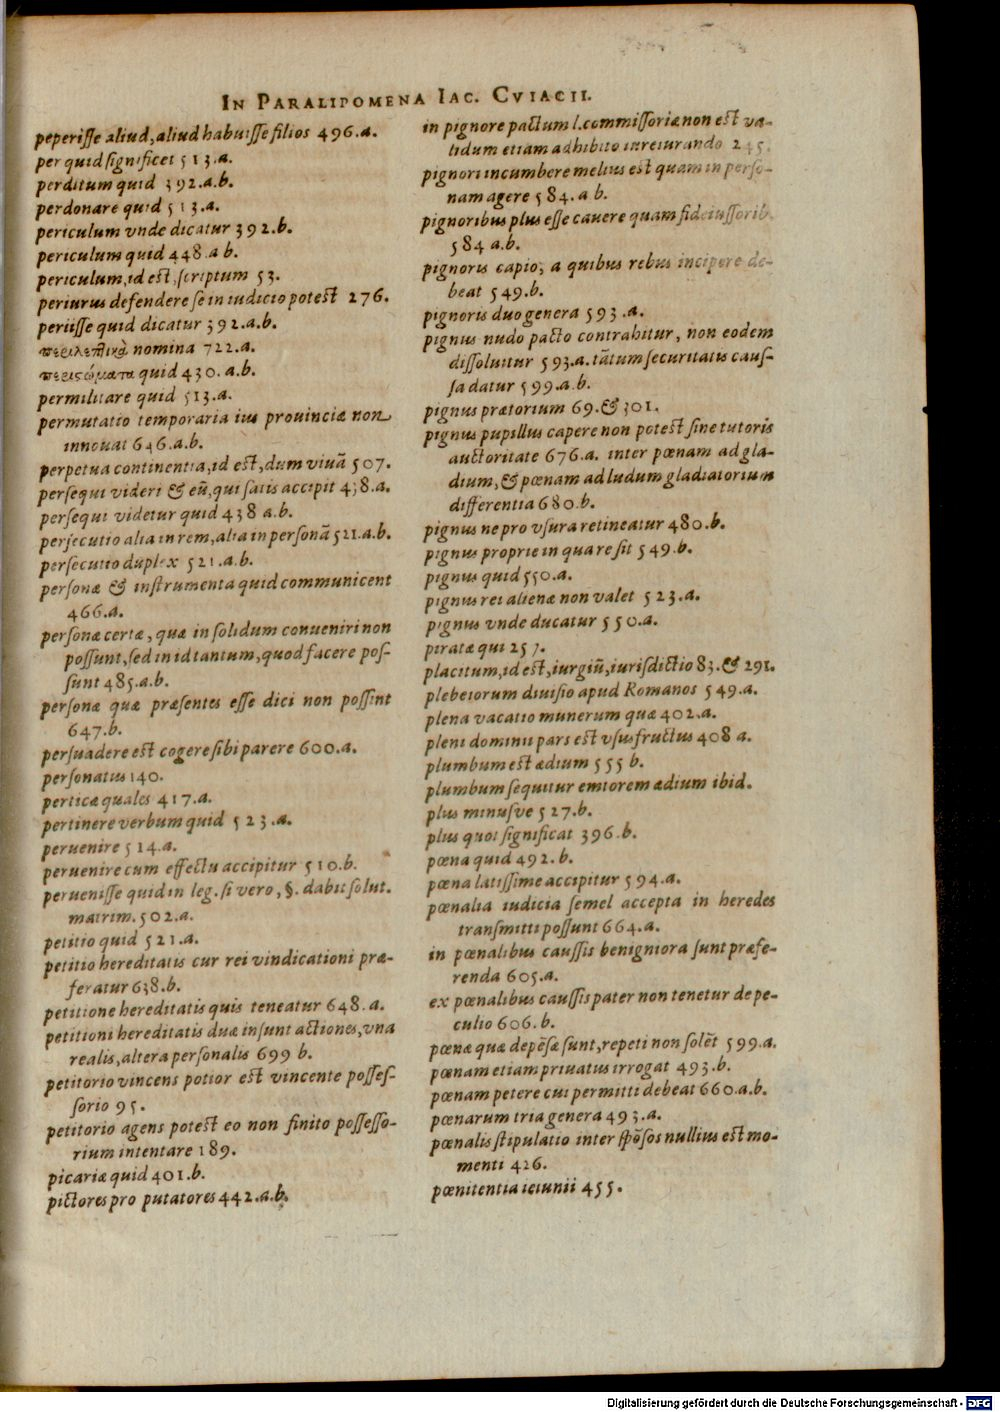 IN PARALIPOMENA IAC. CVIACII.
peperisse aliud, aliud habuisse filios 496.a.
per quid significet 513.a.
perditum quid 392.a.b.
perdonare quid 513.a.
periculum vnde dicatur 392.b.
periculum quid 448.a b.
periculum, id est, scriptum 53.
periurus defendere se in iudicio potest 276.
periisse quid dicatur 392.a.b.
nomina 722.a.
quid 430. a.b.
permilitare quid 513.a.
permutatio temporaria ius prouinciæ non
innouat 646.a.b.
perpetua continentia, id est, dum viuā 507.
persequi videri & eū, qui satis accipit 438.a.
persequi videtur quid 438 a.b.
persecutio alia in rem, alia in personā 521.a.b.
persecutio duplex 521.a.b.
personæ & instrumenta quid communicent
466.a.
personæ certæ, quæ in solidum conueniri non
possunt, sed in id tantum, quod facere pos-
sunt 485.a.b.
personæ quæ præsentes esse dici non possint
647.b.
persuadere est cogere sibi parere 600.a.
personatus 140.
perticæ quales 417.a.
pertinere verbum quid 523.a.
peruenire 514.a.
peruenire cum effectu accipitur 510.b.
peruenisse quid in leg. si vero, §. dabit solut.
matrim. 502.a.
petitio quid 521.a.
petitio hereditatis cur rei vindicationi præ-
feratur 638.b.
petitione hereditatis quis teneatur 648.a.
petitioni hereditatis duæ insunt actiones, vna
realis, altera personalis 699 b.
petitorio vincens potior est vincente posses-
sorio 95.
petitorio agens potest eo non finito possesso-
rium intentare 189.
picariæ quid 401.b.
pictores pro putatores 442.a.b.
in pignore pactum l. commissoriæ non est va-
lidum etiam adhibito iureiurando 245.
pignori incumbere melius est quam in perso-
nam agere 584. a b.
pignoribus plus esse cauere quam fideiussorib.
584 a.b.
pignoris capio, a quibus rebus incipere de-
beat 549.b.
pignoris duo genera 593.a.
pignus nudo pacto contrahitur, non eodem
dissoluitur 593.a. tātum securitatis caus-
sa datur 599.a.b.
pignus prætorium 69. & 301.
pignus pupillus capere non potest sine tutoris
auctoritate 676.a. inter pœnam ad gla-
dium, & pœnam ad ludum gladiatorium
differentia 680.b.
pignus ne pro vsura retineatur 480.b.
pignus proprie in qua re sit 549.b.
pignus quid 550.a.
pignus rei alienæ non valet 523.a.
pignus vnde ducatur 550.a.
piratæ qui 257.
placitum, id est, iurgiū, iurisdictio 83. & 291.
plebeiorum diuisio apud Romanos 549.a.
plena vacatio munerum quæ 402.a.
pleni dominii pars est vsusfructus 408 a.
plumbum est ædium 555 b.
plumbum sequitur emtorem ædium ibid.
plus minusve 527.b.
plus quot significat 396.b.
pœna quid 492.b.
pœna latissime accipitur 594.a.
pœnalia iudicia semel accepta in heredes
transmitti possunt 664.a.
in pœnalibus caussis benigniora sunt præfe-
renda 605.a.
ex pœnalibus caussis pater non tenetur de pe-
culio 606.b.
pœnæ quæ depēsæ sunt, repeti non solēt 599.a.
pœnam etiam priuatus irrogat 493.b.
pœnam petere cui permitti debeat 660.a.b.
pœnarum tria genera 493.a.
pœnalis stipulatio inter spōsos nullius est mo-
menti 426.
pœnitentia ieiunii 455.
Digitalisierung gefördert durch die Deutsche Forschungsgemeinschaft - DFG